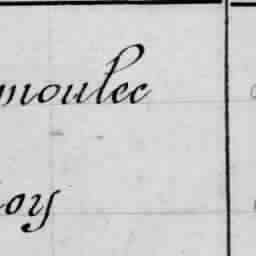 moulec
oy